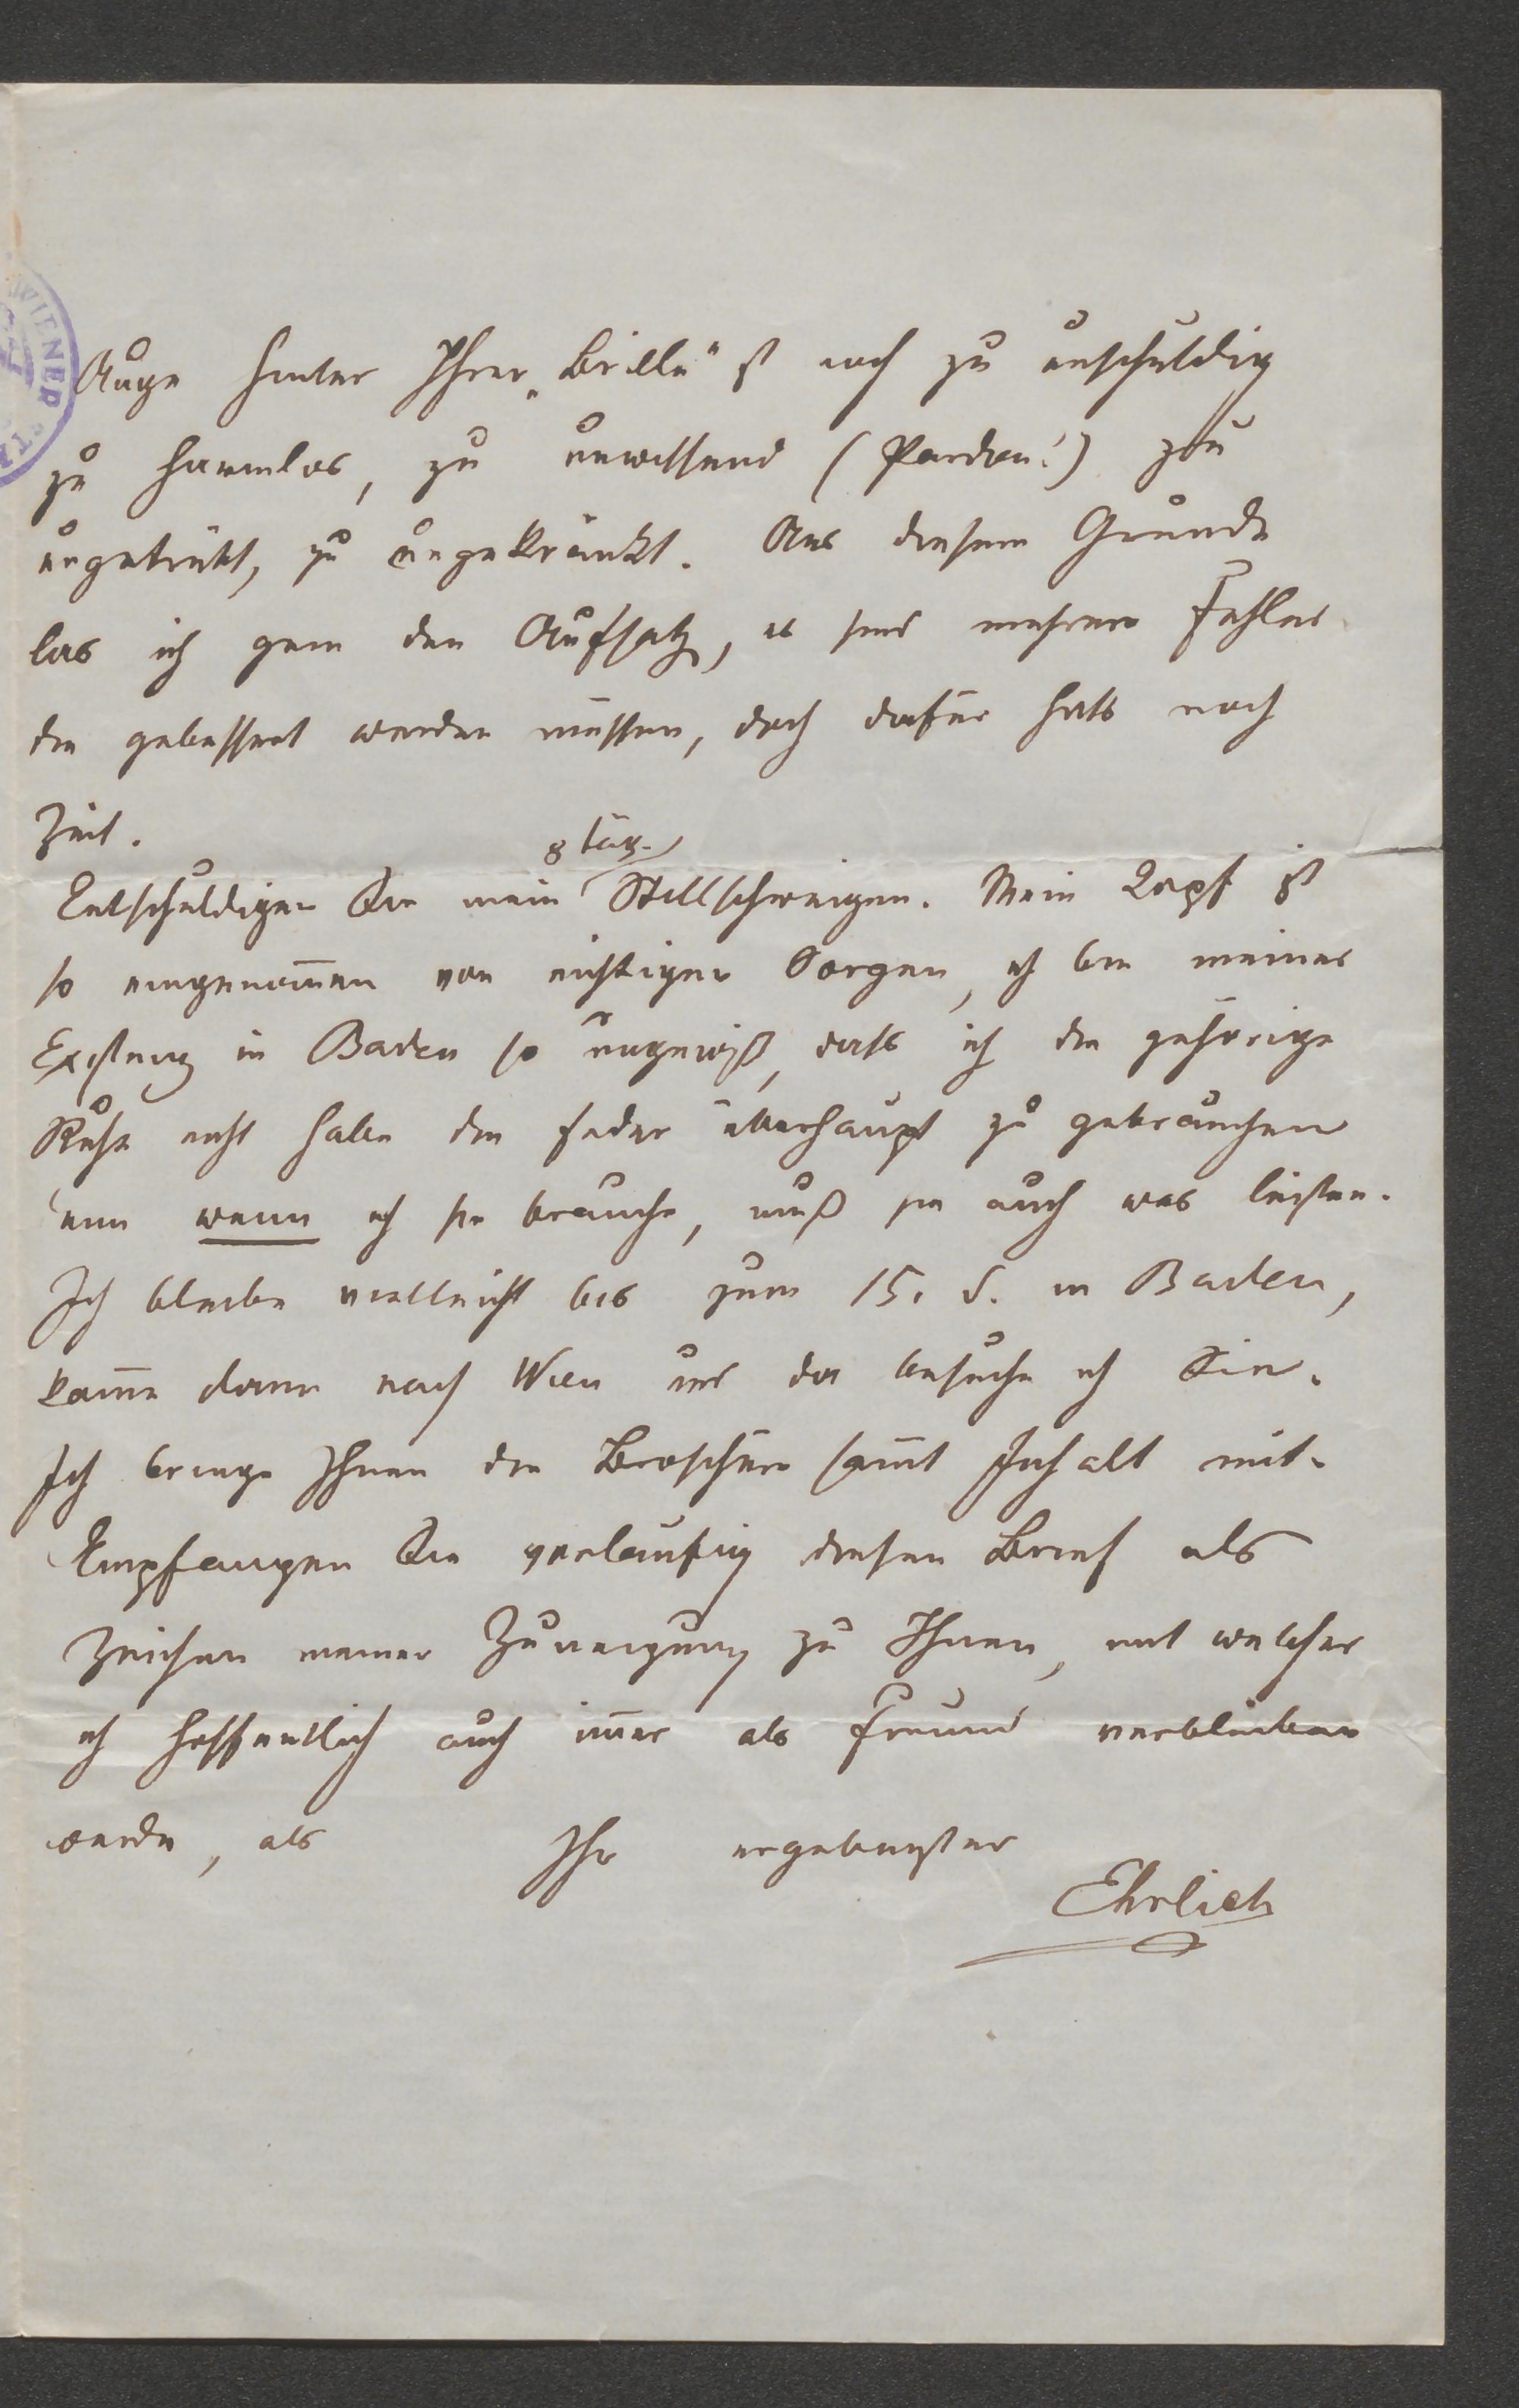 Auge hinter Ihrer „Brille“ ist noch zu unschuldig
zu harmlos, zu unwissend (Pardon!) zu
ungetrübt, zu ungekränkt. Aus diesem Grunde
las ich gern den Aufsatz, es sind mehrere Fehler
die gebessert werden müssen, doch dafür hats noch
Zeit.
8 täg.
Entschuldigen Sie mein Stillschweigen. Mein Kopf ist
so eingenom̅en von nichtigen Sorgen, ich bin meiner
Existenz in Baden so ungewiß, dass ich die gehörige
Ruhe nicht habe die Feder überhaupt zu gebrauchen
denn wenn ich sie brauche, muß sie auch was leisten.
Ich bleibe vielleicht bis zum 15. d. in Baden,
kom̅e dann nach Wien und da besuche ich Sie.
Ich bringe Ihnen die Broschüre sam̅t Inhalt mit.
Empfangen Sie vorläufig diesen Brief als
Zeichen meiner Zuneigung zu Ihnen, mit welcher
ich hoffentlich auch im̅er als Freund verbleiben
werde, als Ihr ergebenster
Ehrlich
WIENER